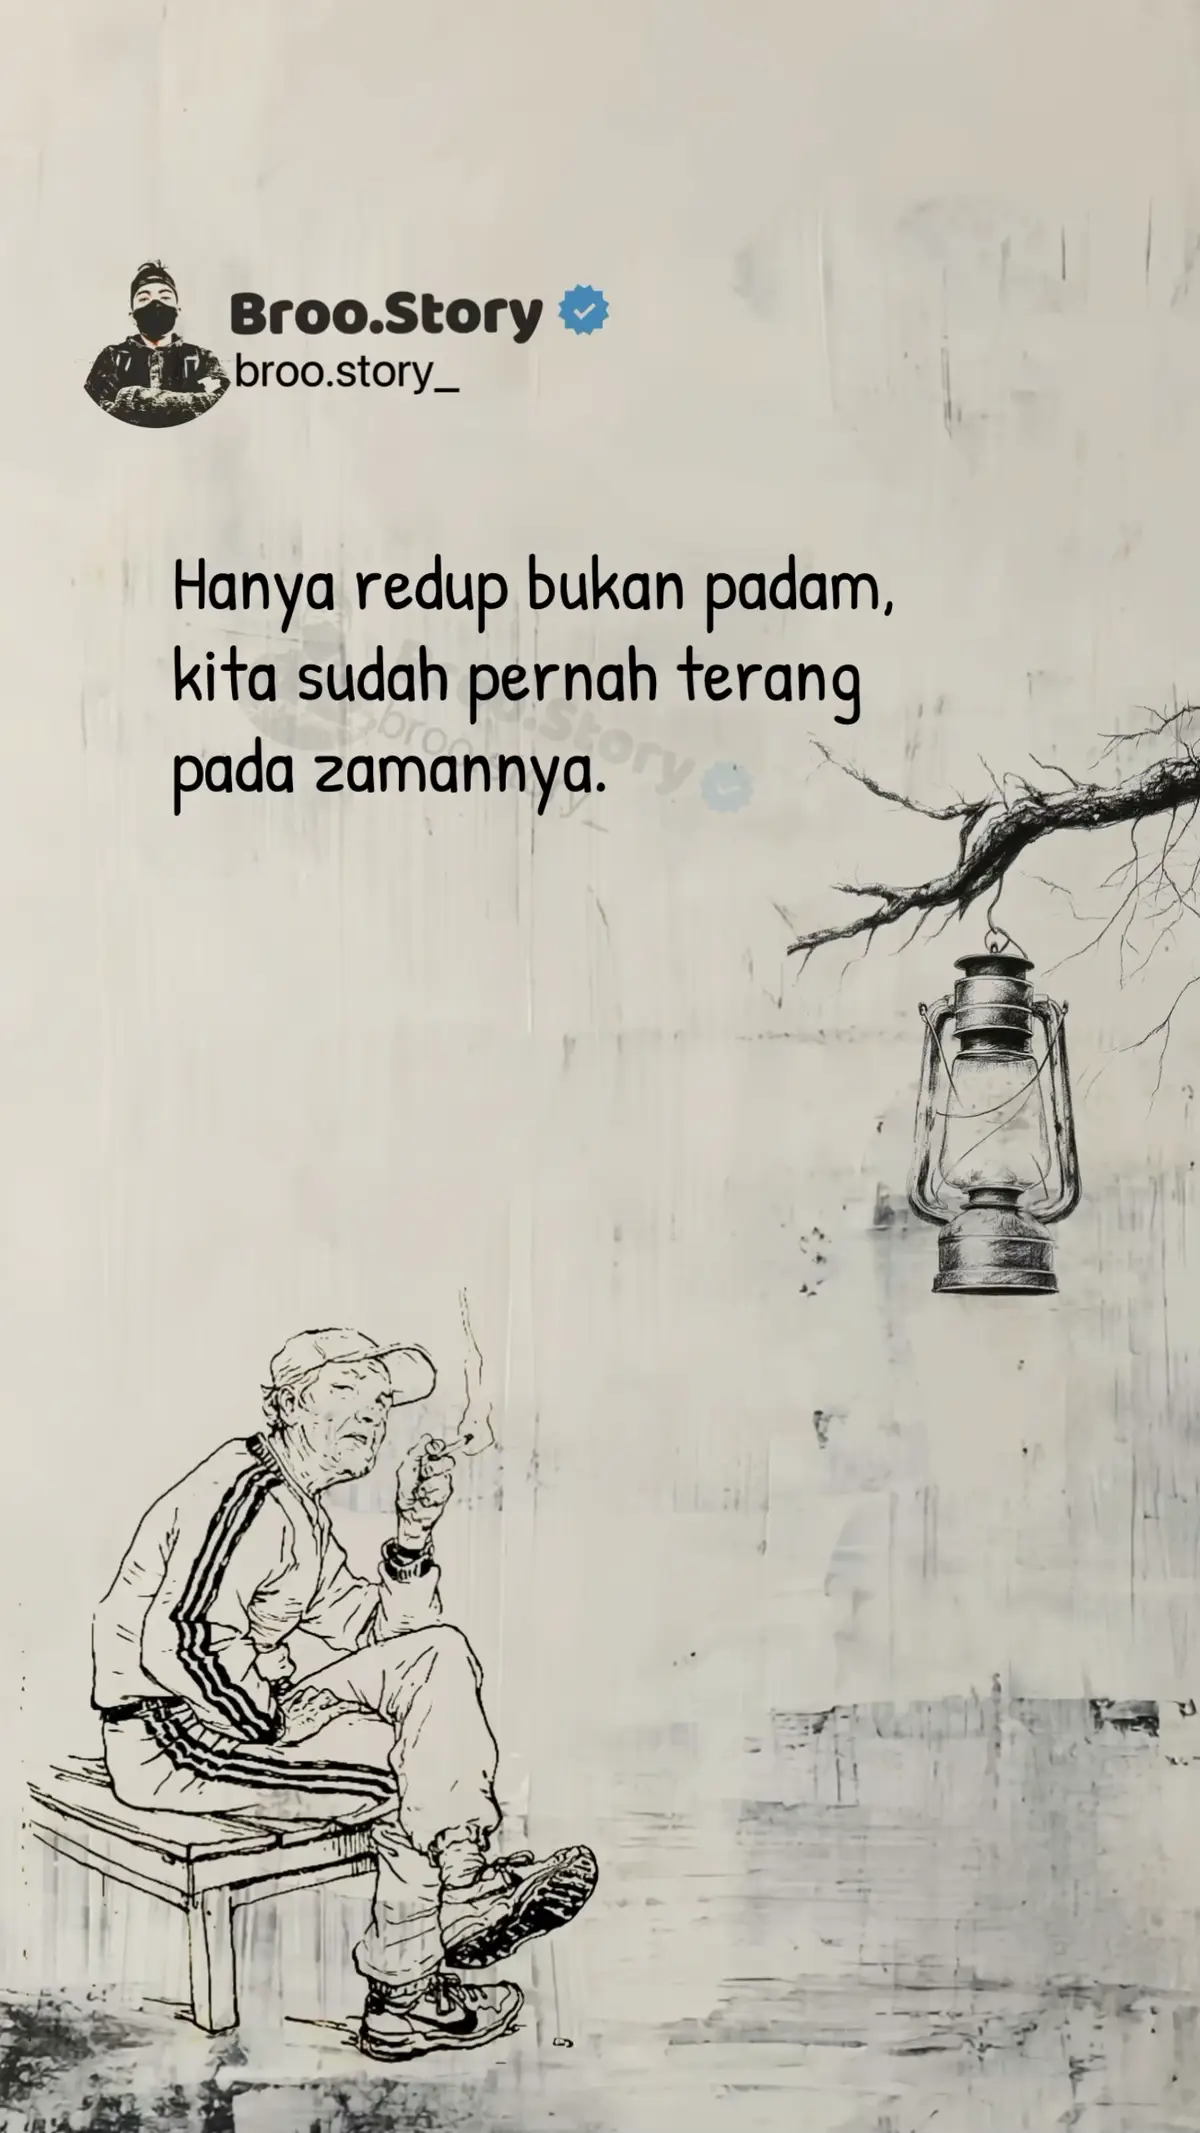 Broo.Story
broo.story_
Hanya redup bukan padam,
kita sudah pernah terang
pada zamannya.
Broo.Story
broo.story_